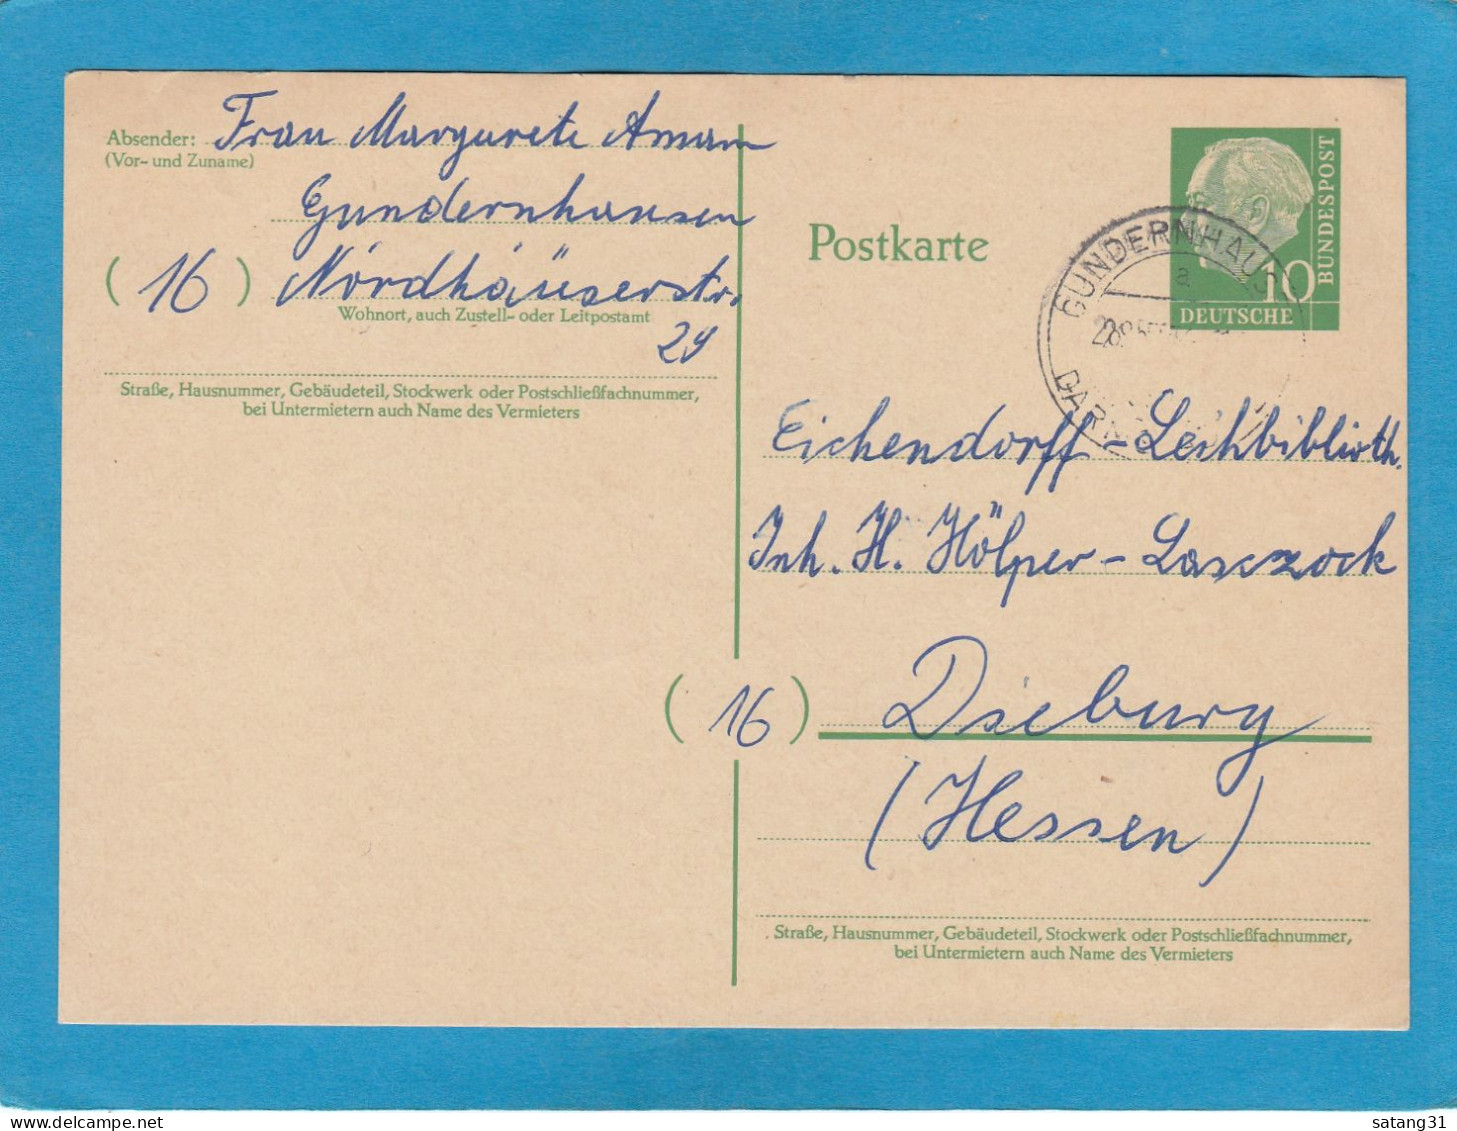 Absender: Frau Margarete Amann
(Vor- und Zuname)
Gundernhausen
(16) Nordhäuserstr.
Wohnort, auch Zustell- oder Leitpostamt
29
Straße, Hausnummer, Gebäudeteil, Stockwerk oder Postschließfachnummer,
bei Untermietern auch Name des Vermieters
Postkarte
10
DEUTSCHE
BUNDESPOST
GUNDERNHAUS
a
Eichendorff-Leihbiblioth.
Inh. H. Hölper-Lasczock
(16) Dieburg
(Hessen)
Straße, Hausnummer, Gebäudeteil, Stockwerk oder Postschließfachnummer,
bei Untermietern auch Name des Vermieters
satang31